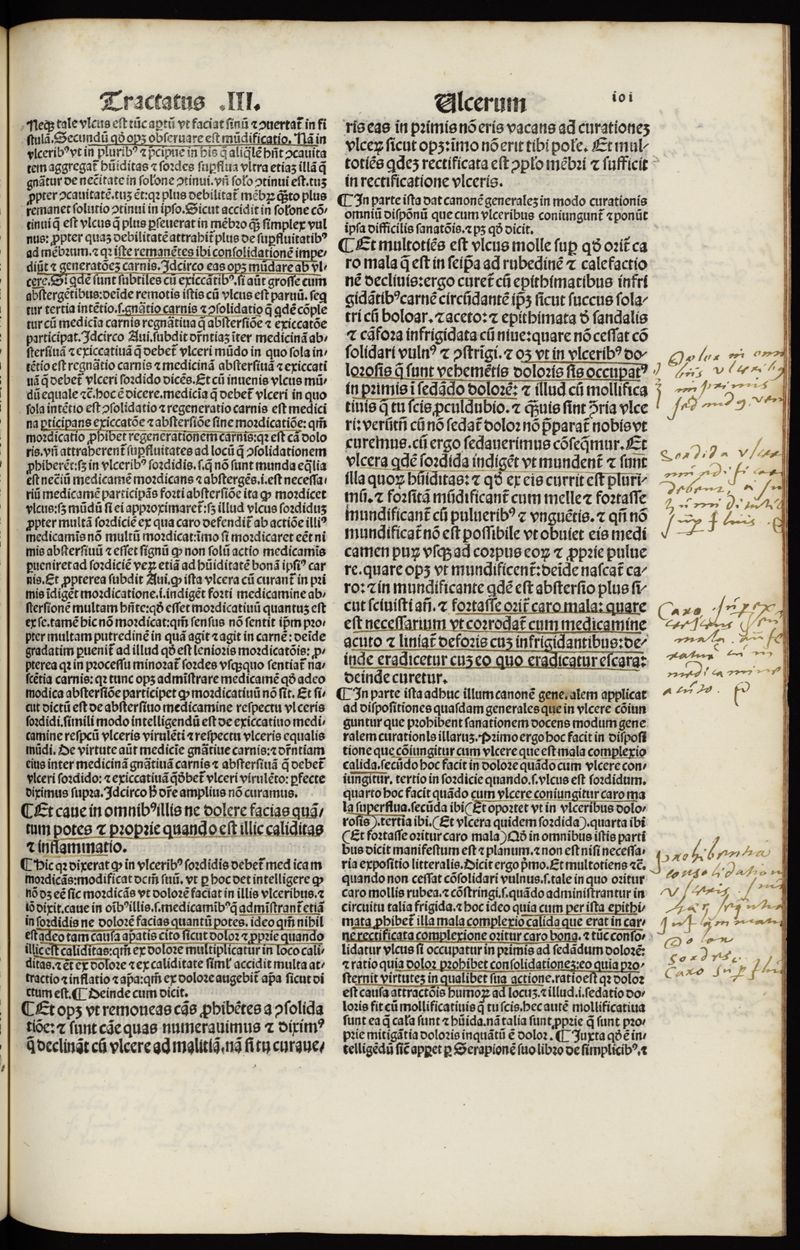 Tractatus .III.
Ulcerum
101
Neqꝫ tale vlcus est tūc aptū vt faciat sinū ⁊ ꝯuertat̄ in fi
stulā. Secundū qd̓ opꝫ obseruare est mūdificatio. Nā in
vlcerib⁹ vt in plurib⁹ ⁊ p̄cipue in his q̄ aliqlēn̄t ꝯcauita
tem aggregat̄ hūiditas ⁊ sordes supflua vltra etiaꝫ illā q̄
gnātur de nec̄itate in solōne ꝯtinui. vn̄ solo ꝯtinui est. tuꝫ
ꝓpter ꝯcauitatē. tuꝫ ēt: qꝛ plus debilitat̄ mēbꝝ q̄ꝫto plus
remanet solutio ꝯtinui in ipso. Sicut accidit in solōne cō-
tinui q̄ est vlcus q̄ plus ꝑseuerat in mēbro q̄ꝫ simplex vul
nus: ꝓpter quaꝫ debilitatē attrahit̄ plus de supfluitatib⁹
ad mēbrum. ⁊ qꝛ iste remanētes ibi consolidationē impe-
diūt ⁊ generatōeꝫ carnis. Jdcirco eas opꝫ mūdare ab vl-
cere. Si qdē sunt subtiles cū exiccātib⁹. si aūt grosse cum
abstergētibus: deide remotis istis cū vlcus est paruū. seq̄
tur tertia intētio. s. gnātio carnis ⁊ ꝯsolidatio q̄ qdē cōple
tur cū medicīa carnis regnātiua q̄ abstersiōe ⁊ exiccatōe
participat. Jdcirco Aui. subdit dr̄ntiaꝫ iter medicinā ab-
stersiuā ⁊ exiccatiuā q̄ debet̄ vlceri mūdo in quo sola in-
tētio est regnātio carnis ⁊ medicinā abstersiuā ⁊ exiccati
uā q̄ debet̄ vlceri sordido dicēs. Et cū inuenis vlcus mū-
dū equale ⁊c̄. hoc ē dicere. medicīa q̄ debet̄ vlceri in quo
sola intētio est ꝯsolidatio ⁊ regeneratio carnis est medici
na ꝑticipans exiccatōe ⁊ abstersiōe sine mordicatiōe: qm̄
mordicatio ꝓhibet regenerationem carnis: qꝛ est cā dolo
ris. vn̄ attraherent̄ supfluitates ad locū q̄ ꝯsolidationem
ꝓhiberēt: sꝫ in vlcerib⁹ sordidis. s. q̄ nō sunt munda eq̄lia
est neciū medicamē mordicans ⁊ abstergēs. i. est necessa-
riū medicamē participās forti abstersiōe ita ꝙ mordicet
vlcus: sꝫ mūdū si ei approximaret̄: sꝫ illud vlcus sordiduꝫ
ꝓpter multā sordiciē ex qua caro defendit̄ ab actiōe illi⁹
medicamīs nō multū mordicat: imo si mordicaret eēt ni
mis abstersiuū ⁊ esset signū ꝙ non solū actio medicamīs
ꝑueniret ad sordiciē veꝝ etiā ad hūiditatē bonā ipsi⁹ car
nis. Et ꝓpterea subdit Aui. ꝙ ista vlcera cū curant̄ in pri
mis idigēt mordicatione. i. indigēt forti medicamine ab-
stersionē multam hn̄te: qd̓ esset mordicatiuū quantuꝫ est
ex se. tamē hic nō mordicat: qm̄ sensus nō sentit ipm̄ pro-
pter multam putredinē in quā agit ⁊ agit in carnē: deide
gradatim ꝑuenit̄ ad illud qd̓ est lenioris mordicatōis: ꝓ-
pterea qꝛ in processu minorat̄ sordes vsqꝫquo sentiat̄ na-
scētia carnis: qꝛ tunc opꝫ admīstrare medicamē qd̓ adeo
modica abstersiōe participet ꝙ mordicatiuū nō sit. Et si-
cut dictū est de abstersiuo medicamine respectu vlceris
sordidi. simili modo intelligendū est de exiccatiuo medi-
camine respcū vlceris virulēti ⁊ respectu vlceris equalis
mūdi. De virtute aūt medicīe gnātiue carnis: ⁊ dr̄ntiam
eius inter medicinā gnātiuā carnis ⁊ abstersiuā q̄ debet̄
vlceri sordido: ⁊ exiccatiuā q̄d̓bet̄ vlceri virulēto: ꝑfecte
diximus supra. Jdcirco h̄ dr̄e amplius nō curamus.
¶Et caue in omnib⁹ illis ne dolere facias quā-
tum potes ⁊ proprie quando est illic caliditas
⁊ inflammatio.
¶Hic qꝛ dixerat ꝙ in vlcerib⁹ sordidis debet̄ med icam
mordicās: modificat dcm̄ suū. vt ꝑ hoc det intelligere ꝙ
nō dꝫ eē sic mordicās vt dolorē faciat in illis vlceribus. ⁊
iō dixit. caue in oīb⁹ illis. s. medicamīb⁹ q̄ admīstrant̄ etiā
in sordidis ne dolorē facias quantū potes. ideo qm̄ nihil
est adeo tam causa apatis cito sicut dolor ⁊ ꝓprie quando
illic est caliditas: qm̄ ex dolore multiplicatur in loco cali-
ditas. ⁊ ēt ex dolore ⁊ ex caliditate siml̓ accidit multa at-
tractio ⁊ inflatio ⁊ apa: qm̄ ex dolore augebit̄ apa sicut di
ctum est. ¶Deinde cum dicit.
¶Et opꝫ vt remoueas cās ꝓhibētes a ꝯsolida
tiōe: ⁊ sunt cāe quas numerauimus ⁊ dixim⁹
q̄ declināt cū vlcere ad malitiā. nā si tu curaue-
ris eas in primis nō eris vacans ad curationeꝫ
vlceꝝ sicut opꝫ: imo nō erit tibi pol̓e. Et mul-
totiēs qdeꝫ rectificata est ꝯplo mēbri ⁊ sufficit
in rectificatione vlceris.
¶In parte ista dat canonē generaleꝫ in modo curationis
omniū dispōnū que cum vlceribus coniungunt̄ ⁊ ponūt
ipsa difficilis sanatōis. ⁊ pꝫ qd̓ dicit.
¶Et multotiēs est vlcus molle sup qd̓ orit̄ ca
ro mala q̄ est in seipā ad rubedinē ⁊ calefactio
nē decliuis: ergo curet̄ cū epithimatibus infri
gidātib⁹ carnē circūdantē ipꝫ sicut succus sola-
tri cū boloar. ⁊ aceto: ⁊ epithimata d̓ sandalis
⁊ cāfora infrigidata cū niue: quare nō cessat cō
solidari vuln⁹ ⁊ ꝯstrigi. ⁊ oꝫ vt in vlcerib⁹ do-
lorosis q̄ sunt vehemētis doloris sis occupat⁹
in primis i sedādo dolorē: ⁊ illud cū mollifica
tiuis q̄ tu scis ꝓculdubio. ⁊ q̄uis sint ꝯ̄ria vlce
ri: verūtn̄ cū nō sedat̄ dolor nō p̄parat̄ nobis vt
curemus. cū ergo sedauerimus cōseq̄mur. Et
vlcera qdē sordida indigēt vt mundent̄ ⁊ sunt
illa quoꝝ hūiditas: ⁊ qd̓ ex eis currit est pluri-
mū. ⁊ forsitā mūdificant̄ cum melle ⁊ fortasse
mundificant̄ cū puluerib⁹ ⁊ vnguētis. ⁊ qn̄ nō
mundificat̄ nō est possibile vt obuiet eis medi
camen puꝝ vsqꝫ ad corpus eoꝝ ⁊ ꝓprie pulue
re. quare opꝫ vt mundificent̄: deide nascat̄ ca-
ro: ⁊ in mundificante qdē est abstersio plus si-
cut sciuisti añ. ⁊ fortasse orit̄ caro mala: quare
est necessarium vt corrodat̄ cum medicamine
acuto ⁊ liniat̄ deforis cuꝫ infrigidantibus: de-
inde eradicetur cuꝫ eo quo eradicatur escara:
deinde curetur.
¶In parte ista adhuc illum canonē gene. alem applicat
ad dispositiones quasdam generales que in vlcere cōiun
guntur que prohibent sanationem docens modum gene
ralem curationis illaruꝫ. Primo ergo hoc facit in disposi
tione que cōiungitur cum vlcere que est mala complexio
calida. secūdo hoc facit in dolore quādo cum vlcere con-
iungitur. tertio in sordicie quando. s. vlcus est sordidum.
quarto hoc facit quādo cum vlcere coniungitur caro ma
la superflua. secūda ibi (Et oportet vt in vlceribus dolo-
rosis). tertia ibi. (Et vlcera quidem sordida). quarta ibi
(Et fortasse oritur caro mala) Qd̓ in omnibus istis parti
bus dicit manifestum est ⁊ planum. ⁊ non est nisi necessa-
ria expositio litteralis. Dicit ergo p̄mo. Et multotiens ⁊c̄.
quando non cessat cōsolidari vulnus. s. tale in quo oritur
caro mollis rubea. ⁊ cōstringi. s. quādo administrantur in
circuitu talia frigida. ⁊ hoc ideo quia cum per ista epithi-
mata ꝓhibet̄ illa mala complexio calida que erat in car-
ne rectificata complexione oritur caro bona. ⁊ tūc conso-
lidatur vlcus si occupatur in primis ad sedādum dolorē:
⁊ ratio quia dolor prohibet consolidationeꝫ: eo quia pro-
sternit virtuteꝫ in qualibet sua actione. ratio est qꝛ dolor
est causa attractōis humoꝝ ad locuꝫ. ⁊ illud. i. sedatio do-
loris fit cū mollificatiuis q̄ tu scis. hec autē mollificatiua
sunt ea q̄ cal̓a sunt ⁊ hūida. nā talia sunt ꝓprie q̄ sunt pro-
prie mitigātia doloris inquātū ē dolor. ¶Juxta qd̓ ē in-
telligēdū sic̄ apꝑet ꝑ Serapionē suo libro de simplicib⁹. ⁊
Dolor in omni
bus vlceribus
in primis
sedand⁹. ven
Sordida vlcera
mundificari
debent
Caro superex
crescens
mala
medicamine
acuto.
prohibentia
consolidation
vlceris
Dolor
sordes.
Caro superflua